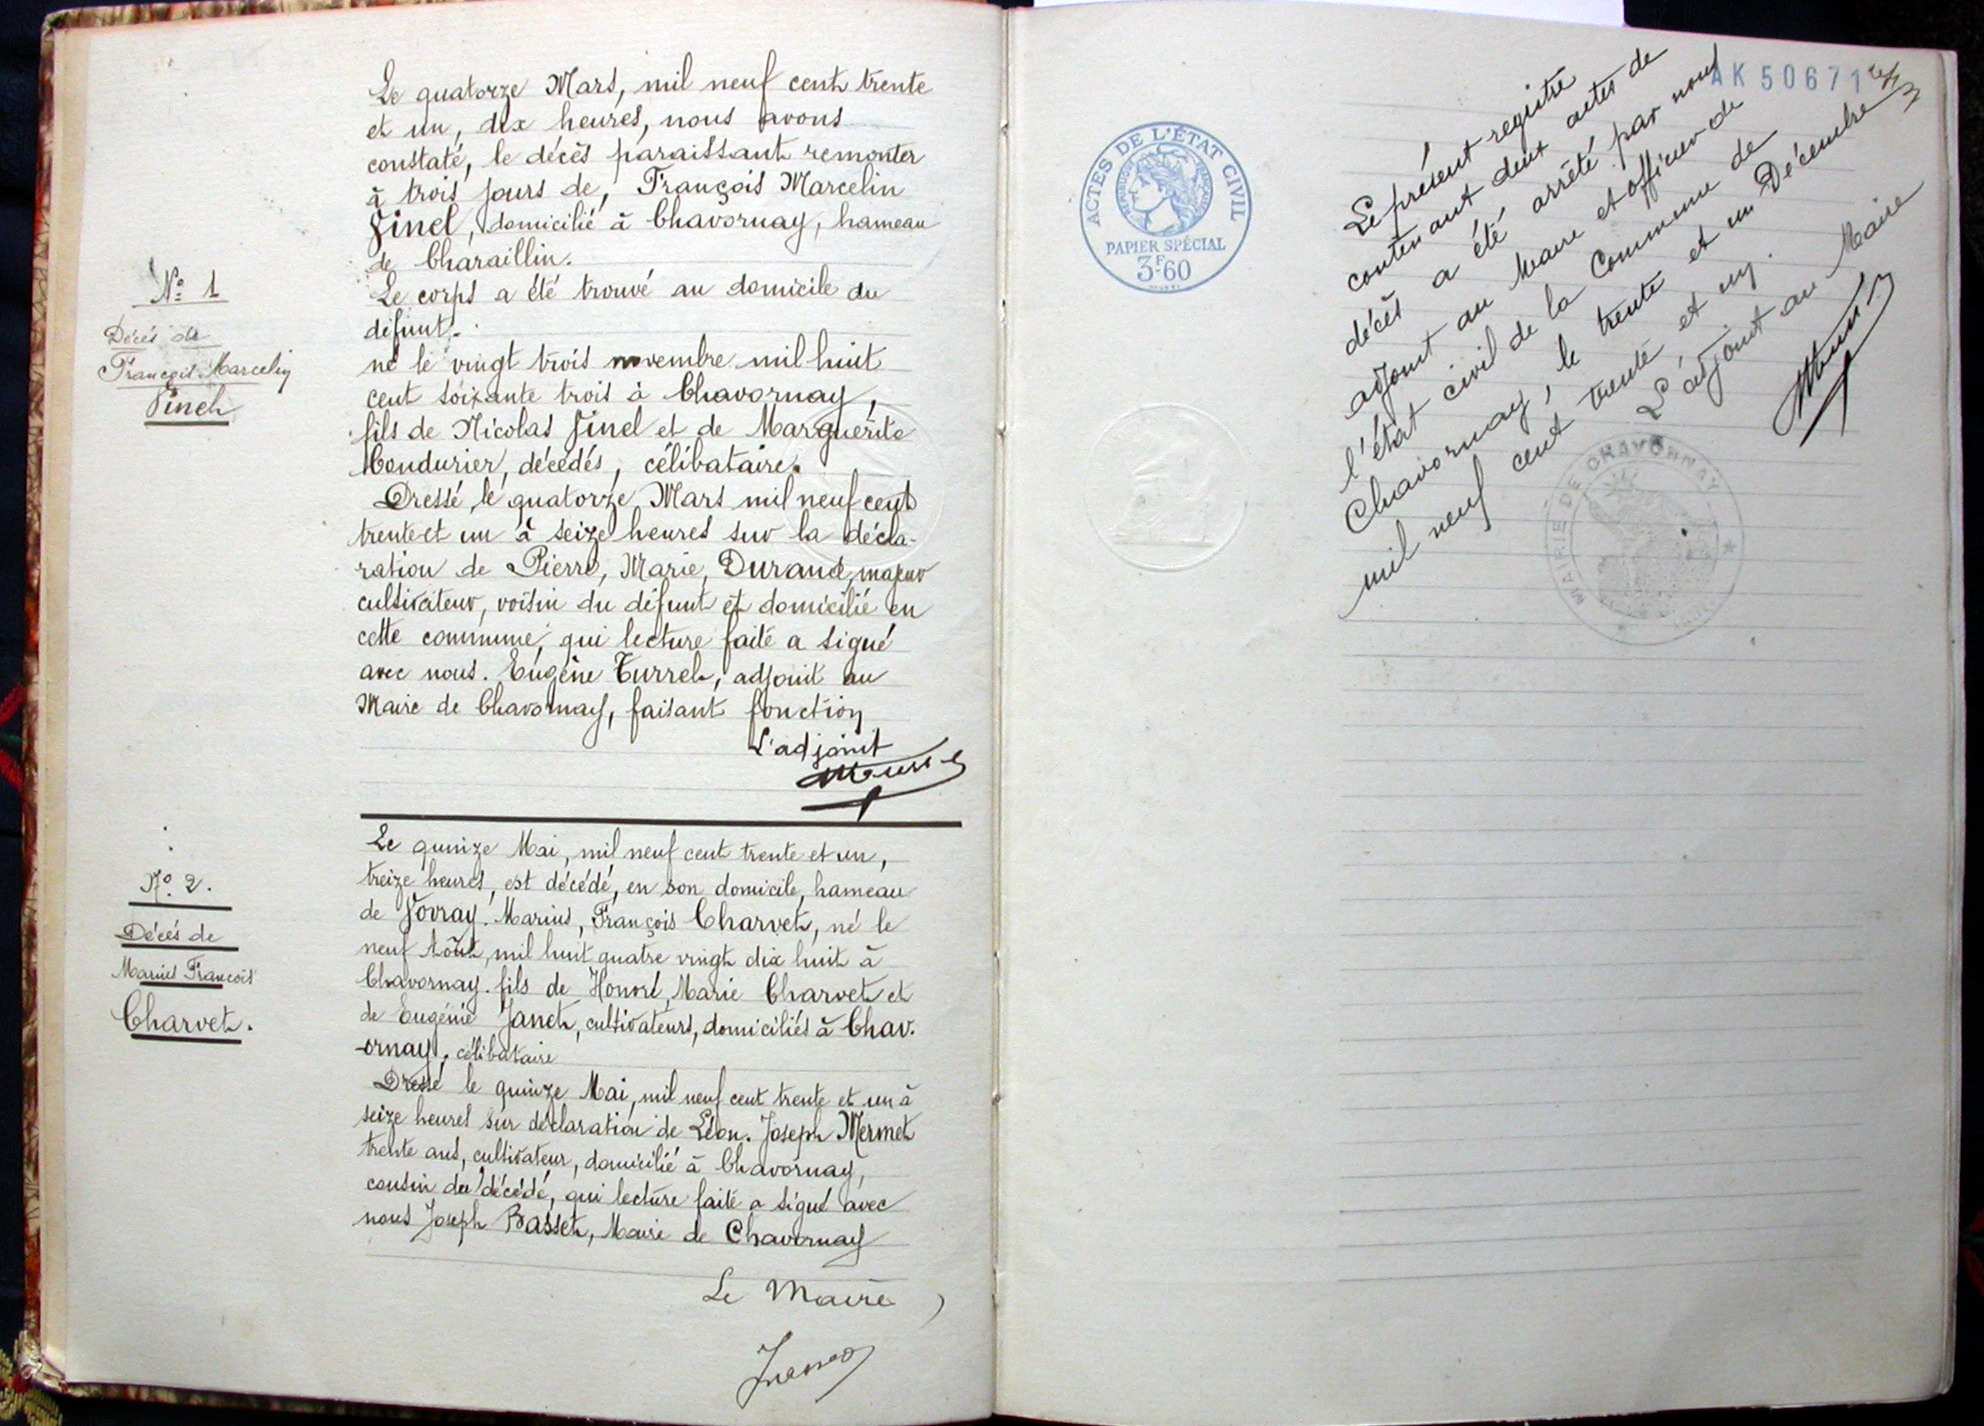 Le quatorze Mars, mil neuf cent trente
et un, dix heures, nous avons
constaté, le décès paraissant remonter
à trois jours de, François Marcelin
Finel, domicilié à Chavornay, hameau
de Charaillin.
Le corps a été trouvé au domicile du
défunt.
né le vingt trois novembre mil huit
cent soixante trois à Chavornay,
fils de Nicolas Finel et de Marguerite
Condurier, décédés, célibataire.
Dressé, le quatorze Mars mil neuf cent
trente et un à seize heures sur la décla-
ration de Pierre, Marie, Durand, majeur
cultivateur, voisin du défunt et domicilié en
cette commune, qui lecture faite a signé
avec nous. Eugène Turrel, adjoint au
Maire de Chavornay, faisant fonction
L'adjoint
No 1
Décès de
François Marcelin
Finel
Le quinze Mai, mil neuf cent trente et un,
treize heures, est décédé, en son domicile, hameau
de Vovray. Marius, François Charvet, né le
neuf Août, mil huit quatre vingt dix huit à
Chavornay. fils de Honoré, Marie Charvet et
de Eugénie Janet, cultivateurs, domiciliés à Chav.
-ornay. célibataire
Dressé le quinze Mai, mil neuf cent trente et un à
seize heures sur déclaration de Léon. Joseph Mermet
trente ans, cultivateur, domicilié à Chavornay,
cousin du décédé, qui lecture faite a signé avec
nous Joseph Basset, Maire de Chavornay
Le Maire
No 2.
Décès de
Marius François
Charvet.
ACTES DE L'ÉTAT CIVIL
RÉPUBLIQUE FRANÇAISE
PAPIER SPÉCIAL
3F.60
AK 50671
Le présent registre
contenant deux actes de
décès a été arrêté par nous
adjoint au Maire et officier de
l'état civil de la Commune de
Chavornay, le trente et un Décembre
mil neuf cent trente et un.
L'adjoint au Maire
MAIRIE DE CHAVORNAY